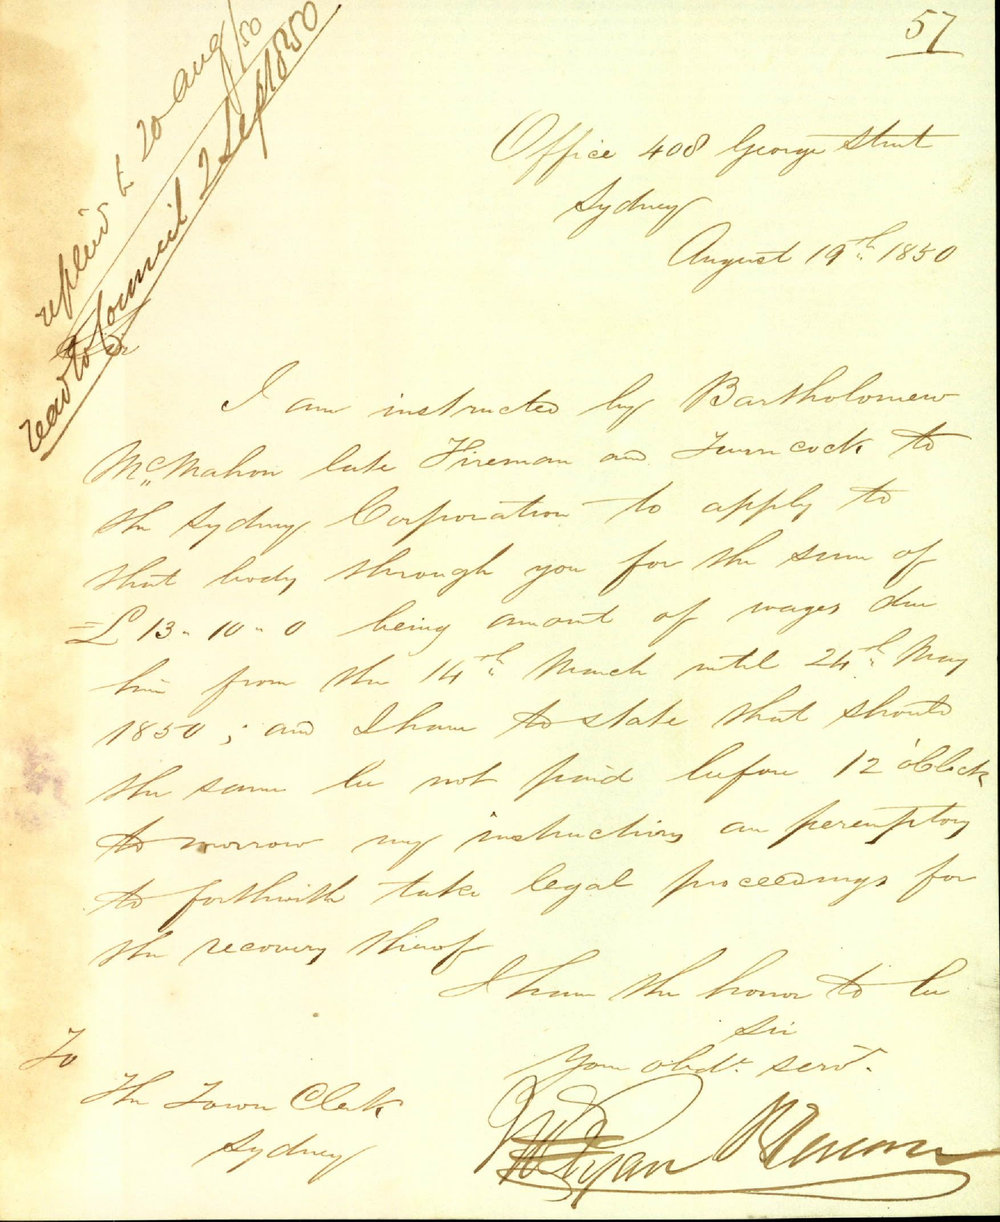 57
replied to 20 Aug/50
read to Council 2 Sep 1850
Office 408 George Street
Sydney
August 19th 1850
Sir
I am instructed by Bartholomew
McMahon late Fireman and Turncock to
the Sydney Corporation to apply to
that body through you for the sum of
£13-10-0 being amount of wages due
him from the 14th March until 24th May
1850; and I have to state that should
the same be not paid before 12 o'Clock
to morrow my instructions are peremptory
to forthwith take legal proceedings for
the recovery thereof
I have the honor to be
Sir
Your obdt. servt.
Ryan Brenan
To
The Town Clerk
Sydney